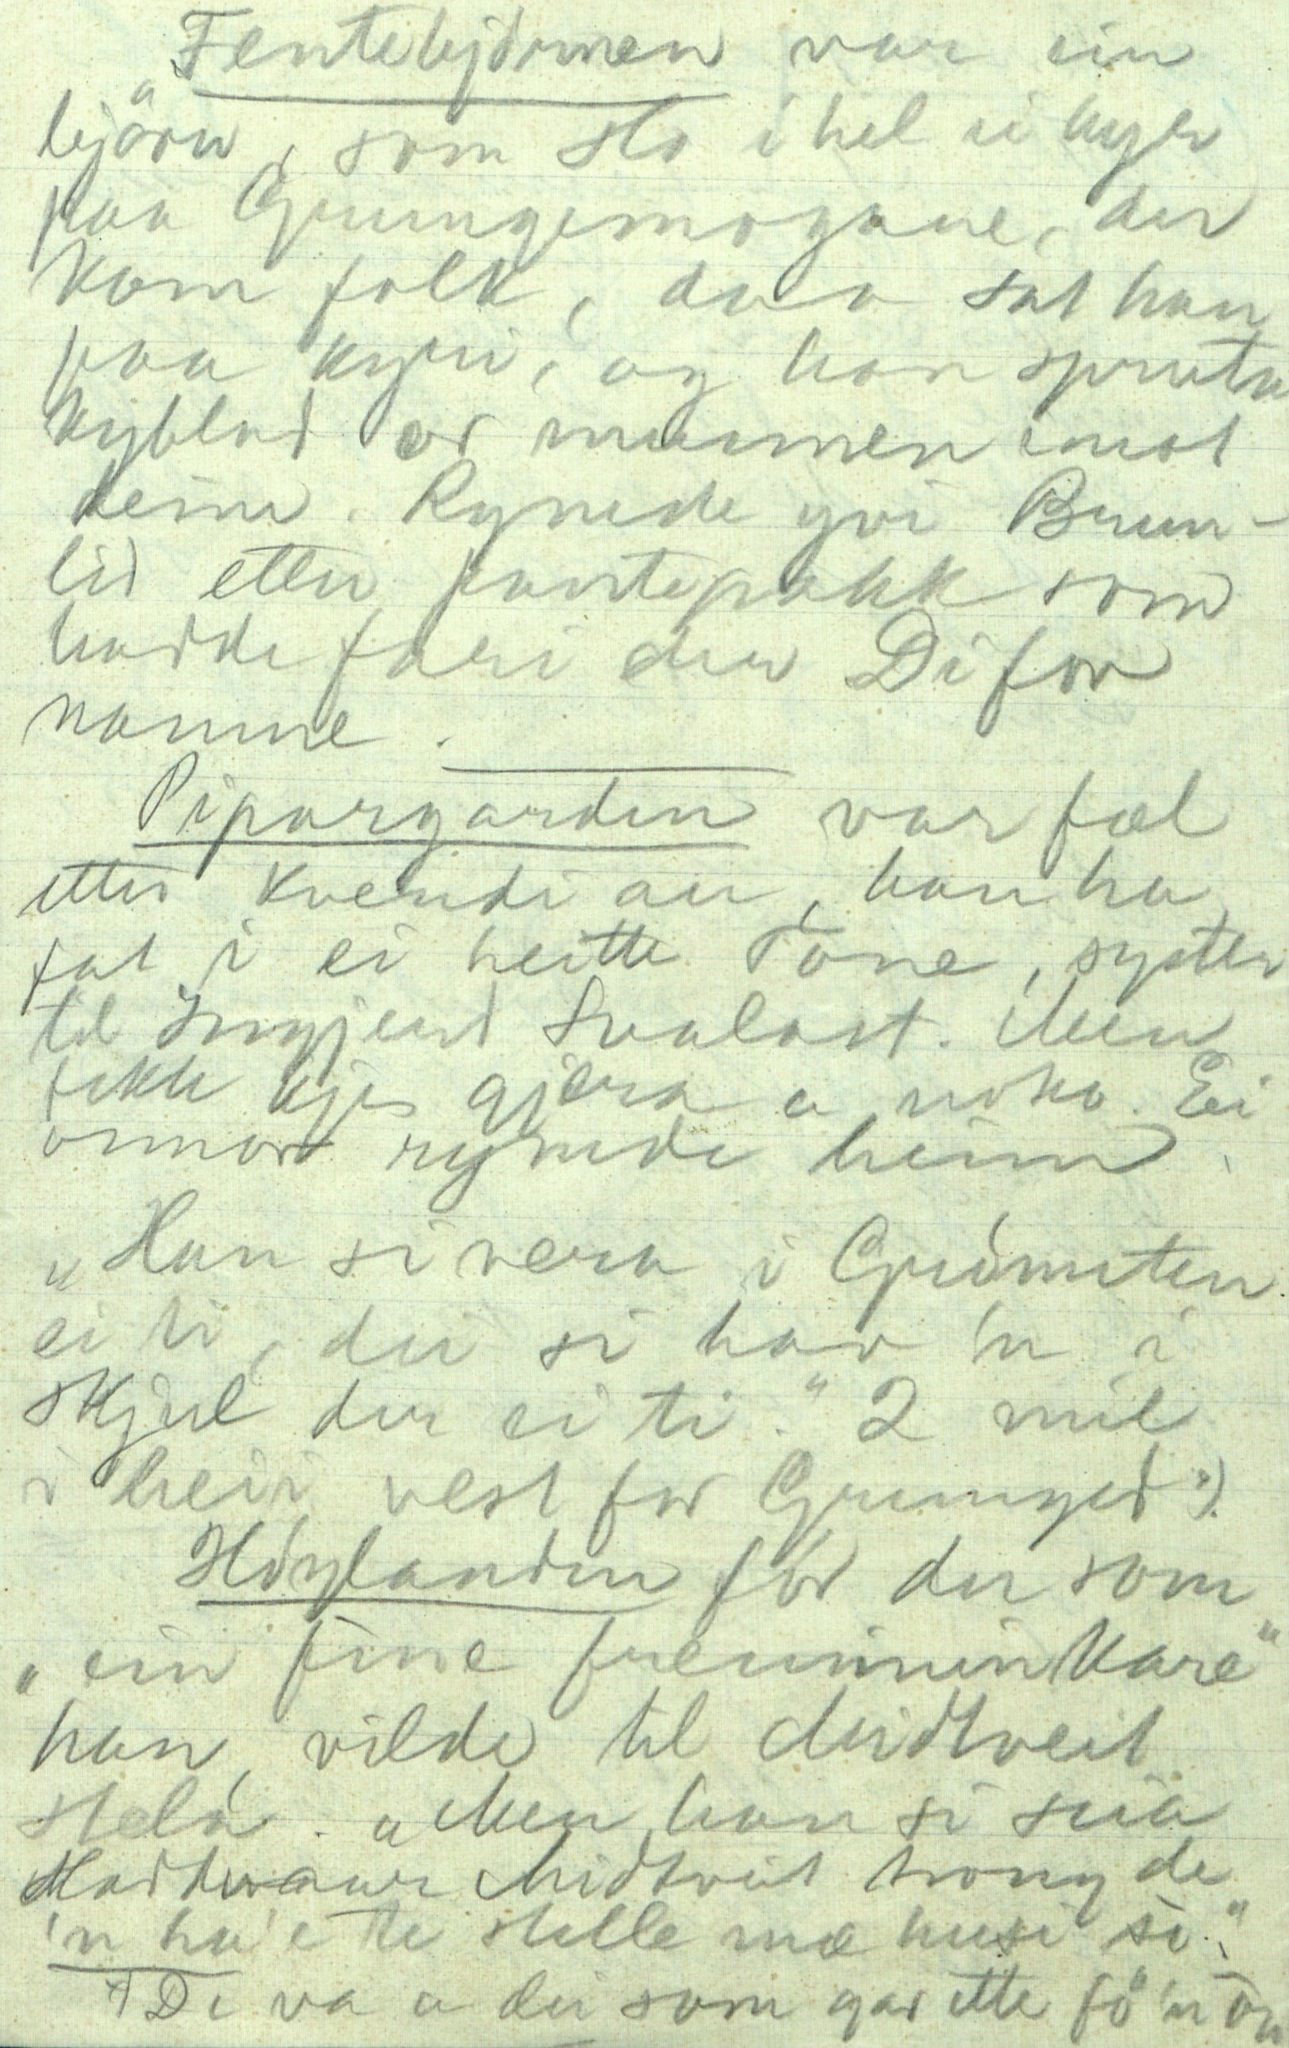 „Fentebjörnen var ein
björn, som slo ihel ei kyr
paa Grungemogane, der
kom folk, daa sat han
paa kyri, og han spruta
kyblod or munnen imot
deim. Rymde yvi Brun-
lid etter fantepakk som
hadde fari der Difor
namne.
Pipargarden var fæl
etter kvendi au, han ha
fat i ei heitte Tone, syster
til Ingjerd Svalast. Men
fekk kje gjera a noko. Ei
onnor rymde heim.
„Han si vera i Gröimsten
ei ti, dei si hav 'n i
skjul der ei ti." 2 mil
i heii vest for Grunged:).
Höylanden för der som
„ein fine fremminkare"
han vilde til Midtveit
stela. „Men han si sia
Hadde aar Midtveit trong de
'n ha'e te stelle mæ husi si."
De va a dei som gav ette fö 'n